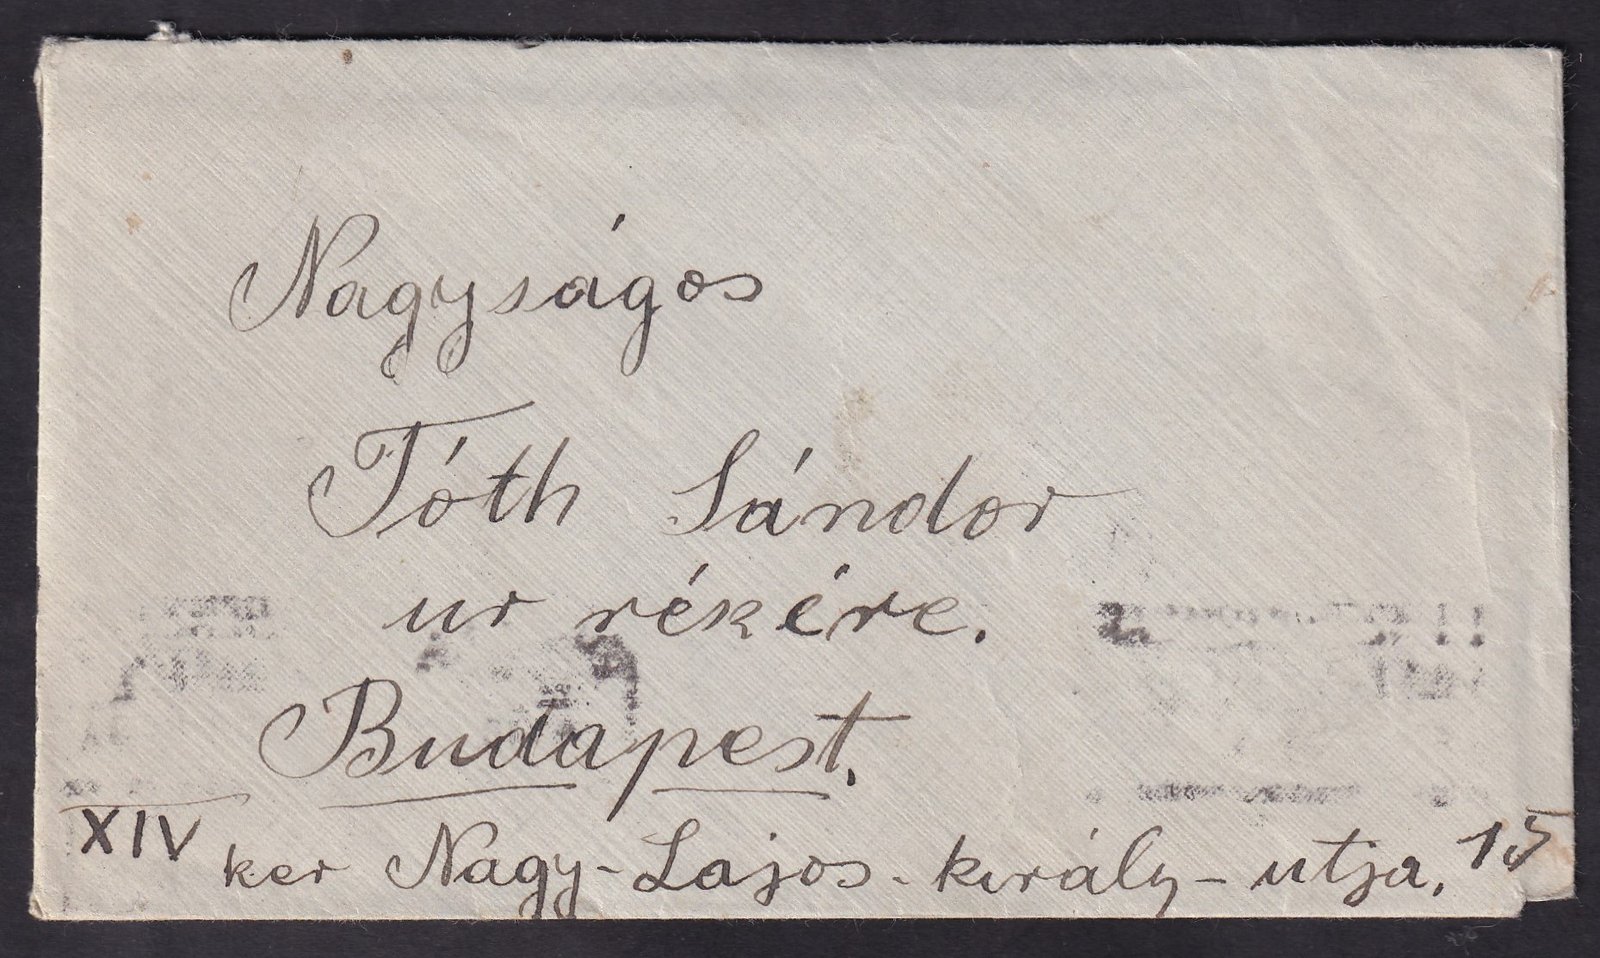 Nagyságos
Tóth Sándor
ur rékére.
Budapest.
XIV ker Nagy-Lajos-király-utja. 15